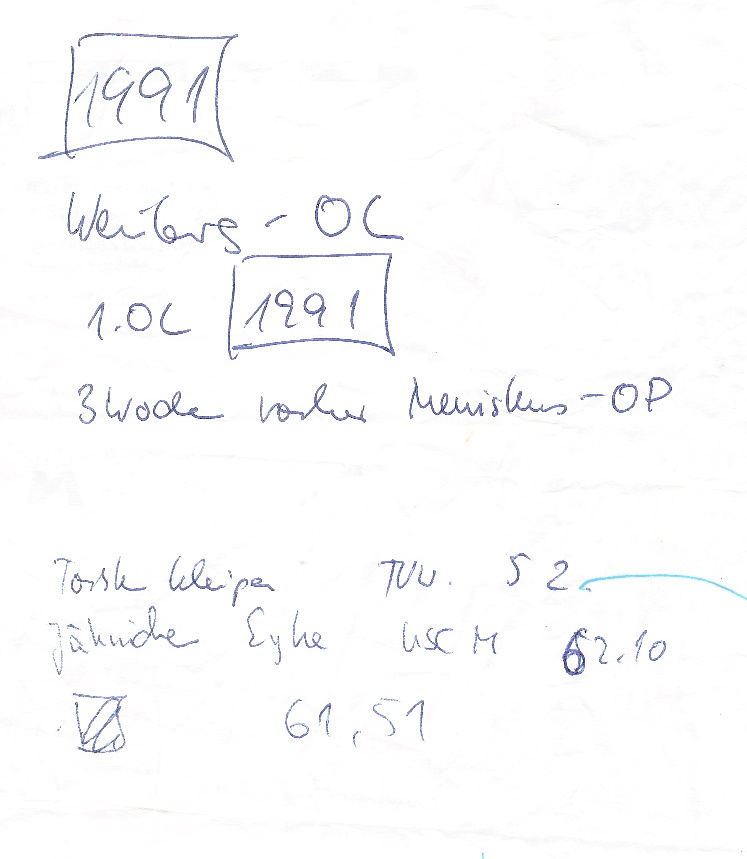 1991
Weinberg - OL
1.OL 1991
3 Woche vorher Meniskus-OP
Torsten TVW. 52.
Jähnichen Eyke KSC M 62.10
61,51